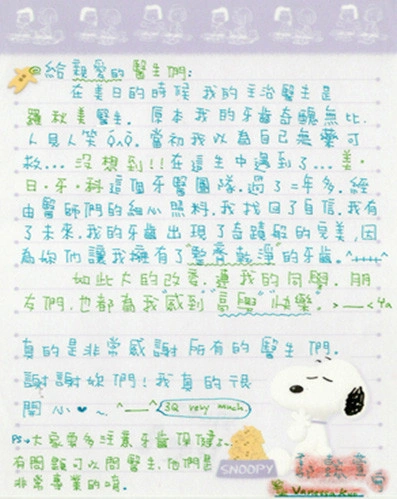 @給親愛的醫生們:
在美日的時候我的主治醫生是
羅秋美醫生. 原本我的牙齒奇醜無比.
人見人笑 QAQ. 當初我以為自己無藥可
救... 沒想到!! 在這生中遇到了... 美.
日.牙.科 這個牙醫團隊. 過了二年多. 經
由醫師們的細心照料. 我找回了自信. 我有
了未來. 我的牙齒出現了奇蹟般的完美, 因
為妳他讓我擁有了"整齊乾淨"的牙齒. ^++++^
如此大的改變. 連我的同學. 朋
友們. 也都為我"感到高興" "快樂". >___< Ya
真的是非常感謝所有的醫生們.
謝謝妳們! 我真的很
開心 ^__^ 3Q very much.
PS→大家要多注意牙齒保健.
有問題可以問醫生. 他們是
非常專業的唷.
SNOOPY